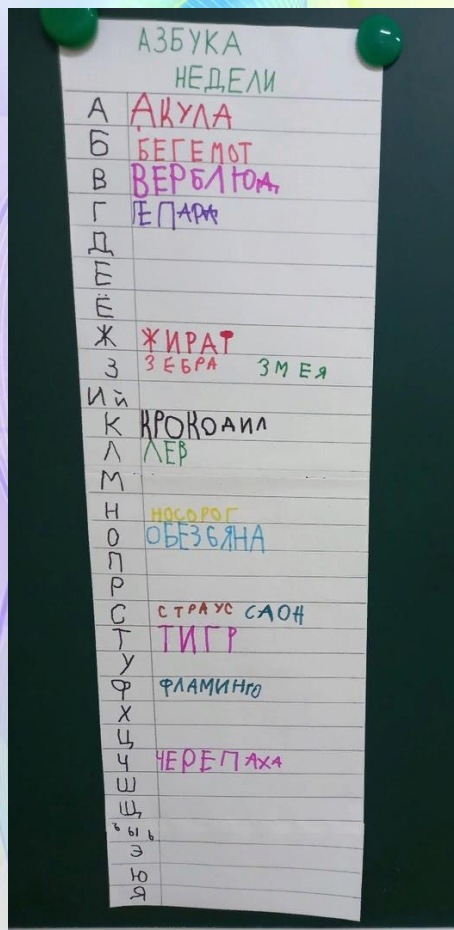 АЗБУКА
НЕДЕЛИ
А АКУЛА
Б БЕГЕМОТ
В ВЕРБЛЮД
Г ГЕПАРД
Д
Е
Ё
Ж ЖИРАТ
З ЗЕБРА ЗМЕЯ
Ий
К КРОКОДИЛ
Л ЛЕВ
М
Н НОСОРОГ
О ОБЕЗЬЯНА
П
Р
С СТРАУС САОН
Т ТИГР
У
Ф ФЛАМИНГО
Х
Ц
Ч ЧЕРЕПАХА
Ш
Щ
ъ ы ь
Э
Ю
Я